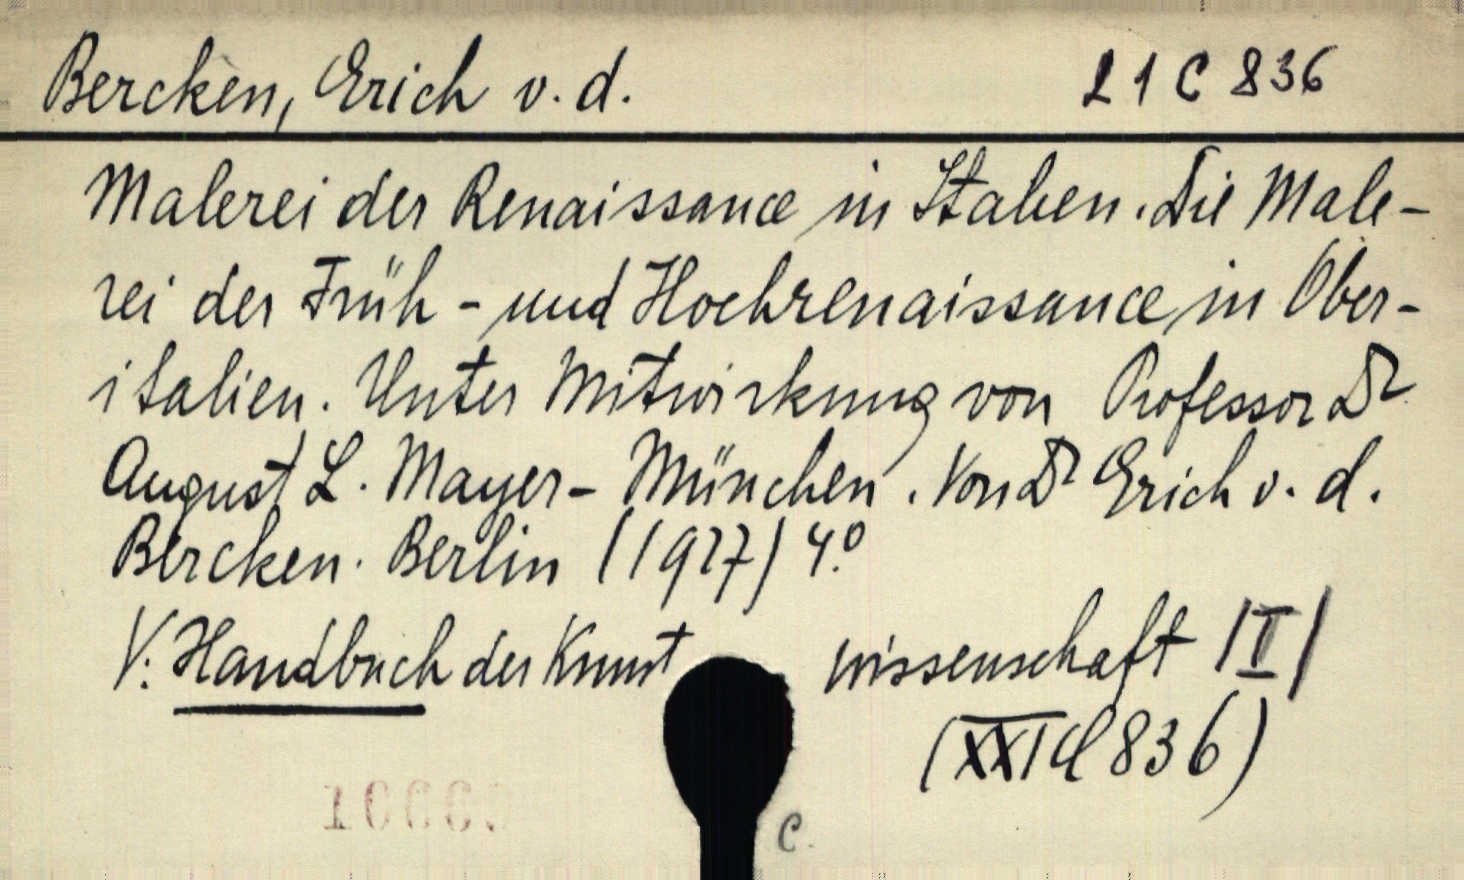 Bercken, Erich v. d. 21 C 836
Malerei der Renaissance in Italien. Die Male-
rei der Früh- und Hochrenaissance in Ober-
italien. Unter Mitwirkung von Professor Dr
August L. Mayer-München. Von Dr Erich v. d.
Bercken. Berlin (1927) 4.º
V. Handbuch der Kunst wissenschaft /I/
(XXI C 836)
C.